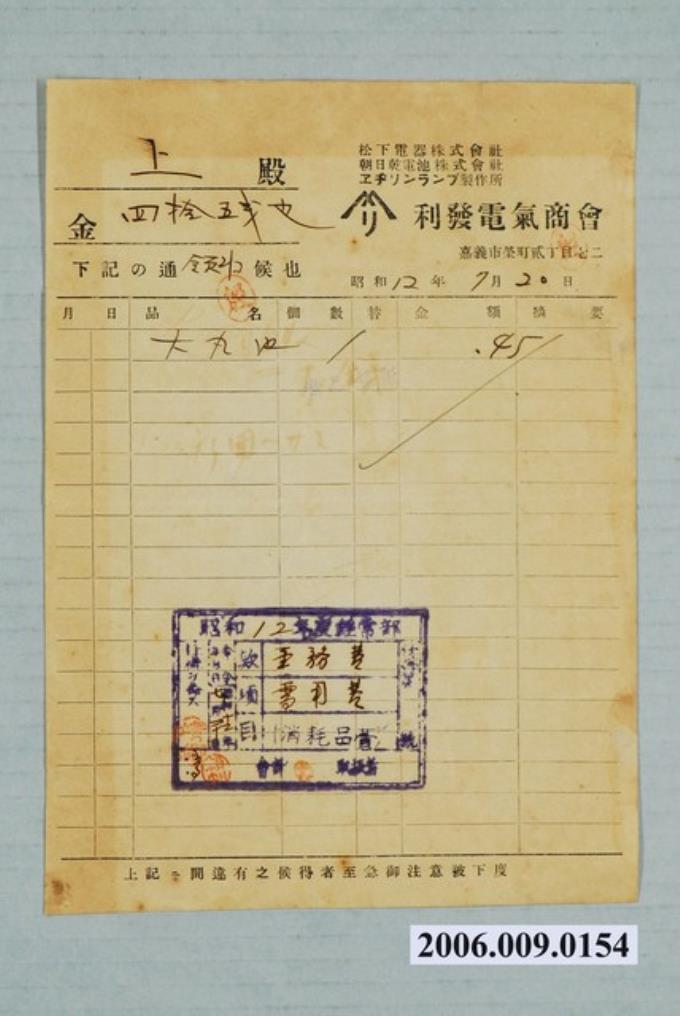 上 殿
松下電器株式會社
朝日乾電池株式會社
ヱヂソンランプ製作所
金 四拾五銭也
利發電氣商會
嘉義市榮町貳丁目七二
下記の通領收候也
昭和12年 7月20日
月 日 品 名 個 數 替 金 額 摘 要
大丸池 1 .45
昭和12年度經常部
款
項 需用費
目 消耗品費
號
會計 取扱者
上記ニ間違有之候得者至急御注意被下度
2006.009.0154